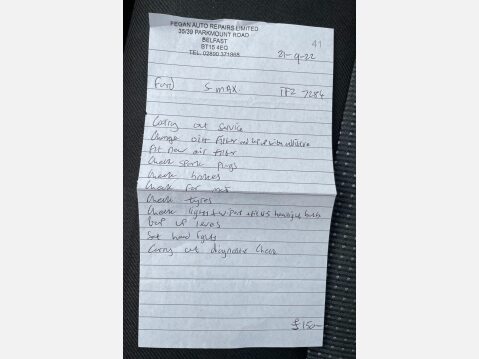 FEGAN AUTO REPAIRS LIMITED
35/39 PARKMOUNT ROAD
BELFAST
BT15 4EQ
TEL. 02890 371868
41
21-9-22
Ford S max TFZ 7284
Carry out service
Change oil + filter and
fit new air filter
Check spark plugs
Check brakes
Check for
Check tyres
Check lights + wipers + headlight bulb
top up levels
Set head lights
Carry out diagnostic check
£150-